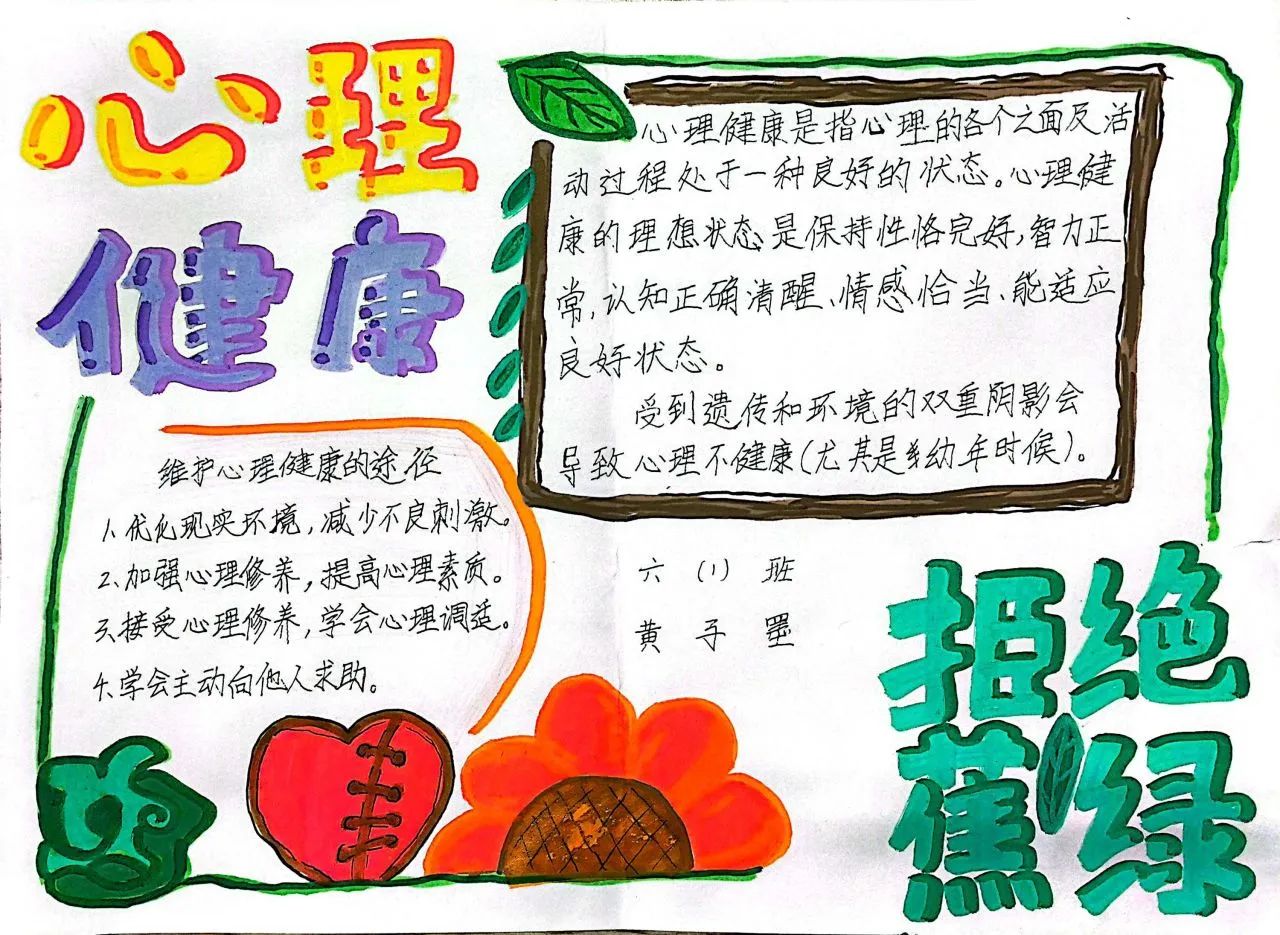 心理
健康
心理健康是指心理的各个之面及活
动过程处于一种良好的状态。心理健
康的理想状态是保持性恪完好,智力正
常,认知正确清醒、情感恰当、能适应
良好状态。
受到遗传和环境的双重阴影会
导致心理不健康(尤其是幼年时候)。
维护心理健康的途径
1、优化现实环境,减少不良刺激。
2、加强心理修养,提高心理素质。
3、接受心理修养,学会心理调适。
4、学会主动向他人求助。
六(1)班
黄子墨
拒绝
蕉绿